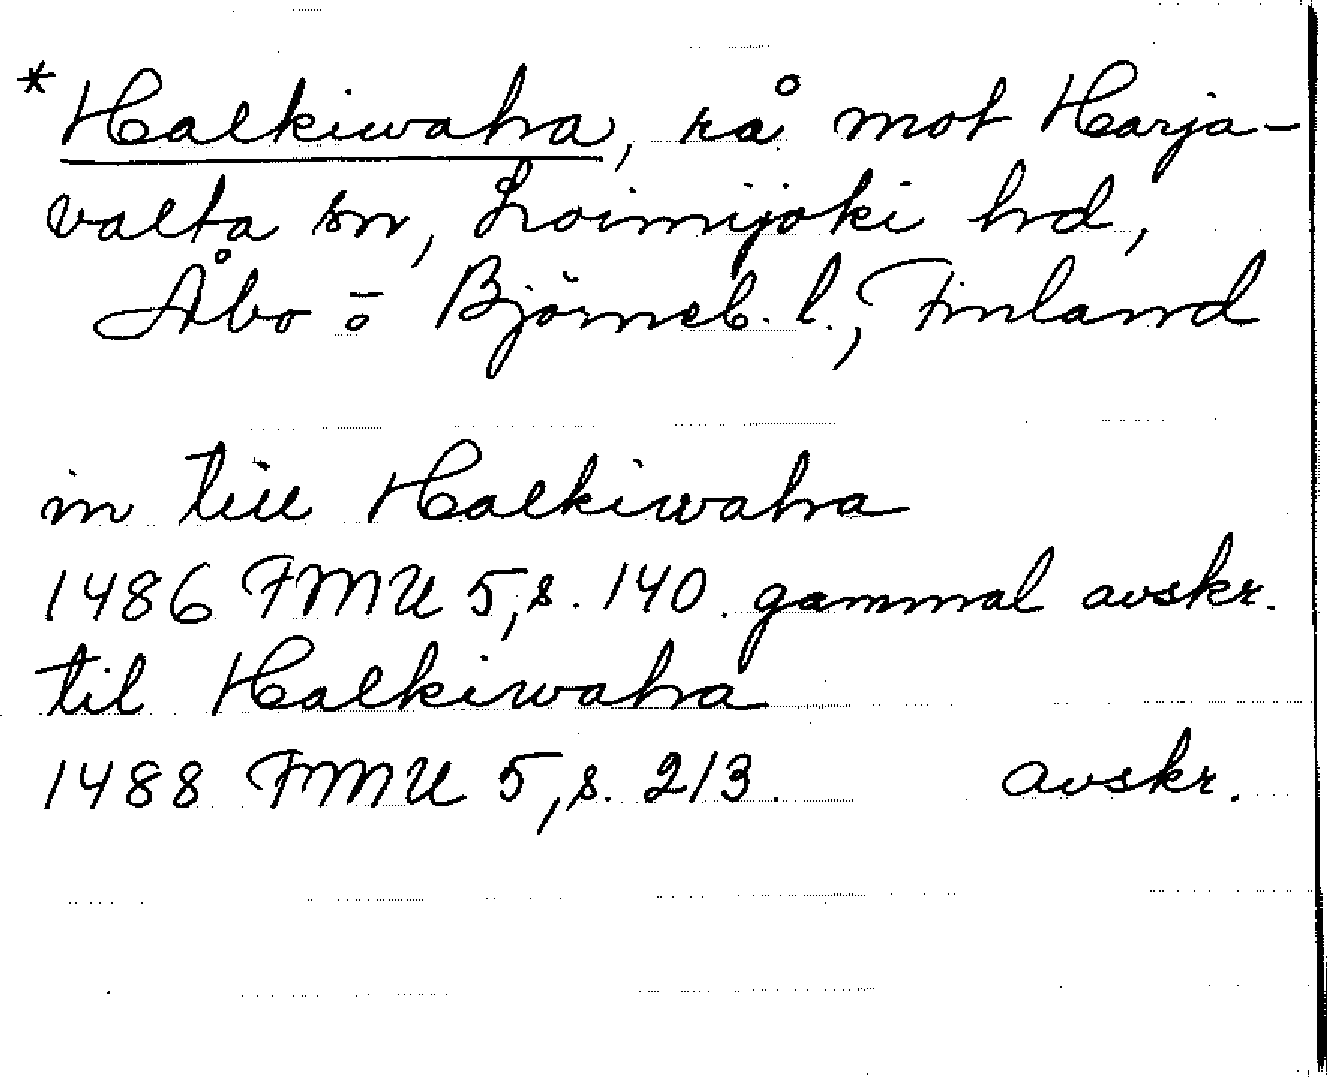 *Halkiwaha, rå mot Harja-
valta sn, Loimijoki hd,
Åbo o Björneb. l., Finland
in till Halkiwaha
1486 FMU 5, s. 140. gammal avskr.
til Halkiwaha
1488 FMU 5, s. 213. avskr.